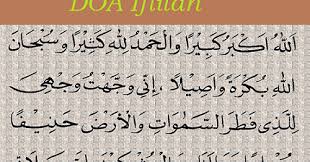 DOA Iftitah
اَللهُ اَكْبَرُ كَبِيْرًا وَالْحَمْدُ لِلّٰهِ كَثِيْرًا وَسُبْحَانَ
اللهِ بُكْرَةً وَاَصِيْلًا، اِنِّى وَجَّهْتُ وَجْهِيَ
لِلَّذِى فَطَرَ السَّمٰوَاتِ وَالْاَرْضَ حَنِيْفًا